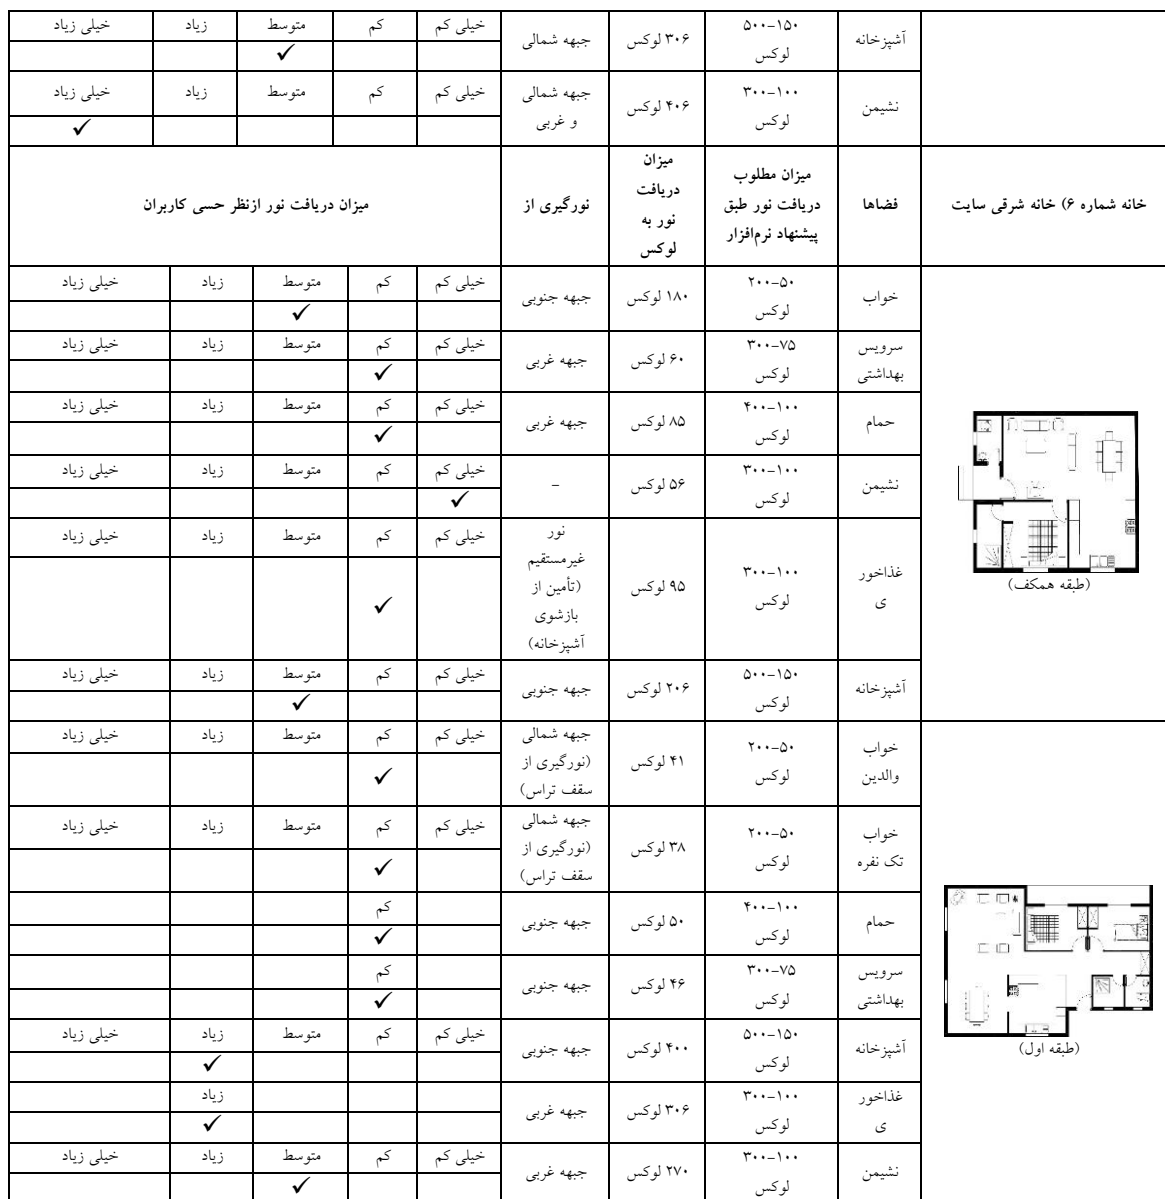 آشپزخانه
۵۰۰-۱۵۰
لوکس
۳۰۶ لوکس
جبهه شمالی
خیلی کم
کم
متوسط
زیاد
خیلی زیاد
✓
نشیمن
۳۰۰-۱۰۰
لوکس
۴۰۶ لوکس
جبهه شمالی
و غربی
خیلی کم
کم
متوسط
زیاد
خیلی زیاد
✓
خانه شماره ۶) خانه شرقی سایت
فضاها
میزان مطلوب
دریافت نور طبق
پیشنهاد نرم‌افزار
میزان
دریافت
نور به
لوکس
نورگیری از
میزان دریافت نور ازنظر حسی کاربران
خواب
۲۰۰-۵۰
لوکس
۱۸۰ لوکس
جبهه جنوبی
خیلی کم
کم
متوسط
زیاد
خیلی زیاد
✓
سرویس
بهداشتی
۳۰۰-۷۵
لوکس
۶۰ لوکس
جبهه غربی
خیلی کم
کم
متوسط
زیاد
خیلی زیاد
✓
حمام
۴۰۰-۱۰۰
لوکس
۸۵ لوکس
جبهه غربی
خیلی کم
کم
متوسط
زیاد
خیلی زیاد
✓
نشیمن
۳۰۰-۱۰۰
لوکس
۵۶ لوکس
-
خیلی کم
کم
متوسط
زیاد
خیلی زیاد
✓
غذاخور
ی
۳۰۰-۱۰۰
لوکس
۹۵ لوکس
نور
غیرمستقیم
(تأمین از
بازشوی
آشپزخانه)
خیلی کم
کم
متوسط
زیاد
خیلی زیاد
✓
(طبقه همکف)
آشپزخانه
۵۰۰-۱۵۰
لوکس
۲۰۶ لوکس
جبهه جنوبی
خیلی کم
کم
متوسط
زیاد
خیلی زیاد
✓
خواب
والدین
۲۰۰-۵۰
لوکس
۴۱ لوکس
جبهه شمالی
(نورگیری از
سقف تراس)
خیلی کم
کم
متوسط
زیاد
خیلی زیاد
✓
خواب
تک نفره
۲۰۰-۵۰
لوکس
۳۸ لوکس
جبهه شمالی
(نورگیری از
سقف تراس)
خیلی کم
کم
متوسط
زیاد
خیلی زیاد
✓
حمام
۴۰۰-۱۰۰
لوکس
۵۰ لوکس
جبهه جنوبی
کم
✓
سرویس
بهداشتی
۳۰۰-۷۵
لوکس
۴۶ لوکس
جبهه جنوبی
کم
✓
آشپزخانه
۵۰۰-۱۵۰
لوکس
۴۰۰ لوکس
جبهه جنوبی
خیلی کم
کم
متوسط
زیاد
خیلی زیاد
✓
(طبقه اول)
غذاخور
ی
۳۰۰-۱۰۰
لوکس
۳۰۶ لوکس
جبهه غربی
زیاد
✓
نشیمن
۳۰۰-۱۰۰
لوکس
۲۷۰ لوکس
جبهه غربی
خیلی کم
کم
متوسط
زیاد
خیلی زیاد
✓